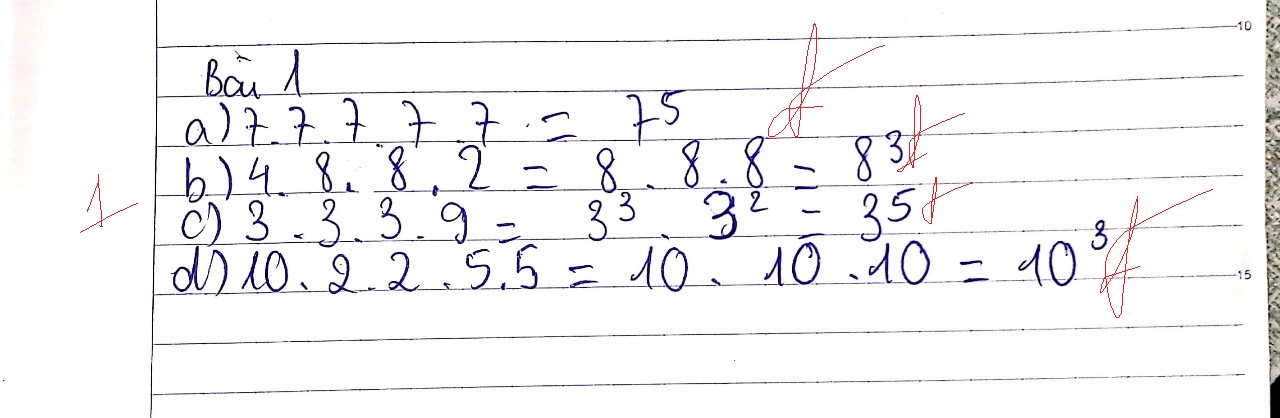 10
Bài 1
a) 7.7.7.7.7 = 7⁵
b) 4.8.8.2 = 8.8.8 = 8³
1
c) 3.3.3.9 = 3³.3² = 3⁵
d) 10.2.2.5.5 = 10.10.10 = 10³
15